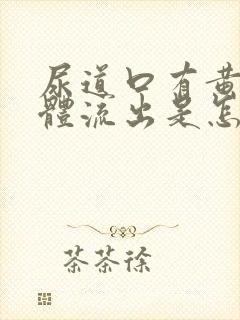 尿道口有黄
體流出是怎
茶茶徐